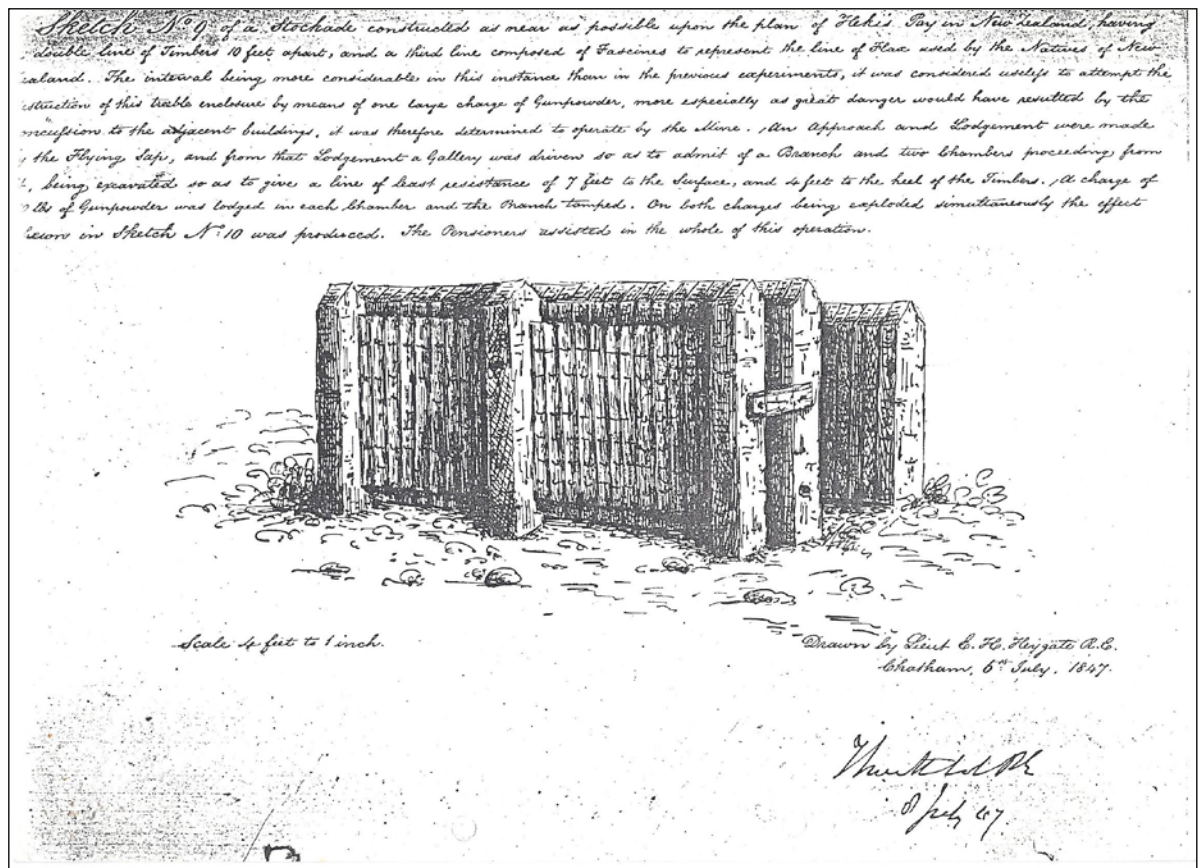 Sketch No. 9 of a Stockade constructed as near as possible upon the plan of Hekis Pay in New Zealand, having
double line of Timbers 10 feet apart, and a third line composed of Fascines to represent the line of Flax used by the Natives of New
ealand. The interval being more considerable in this instance than in the previous experiments, it was considered useless to attempt the
struction of this treble enclosure by means of one large charge of Gunpowder, more especially as great danger would have resulted by the
ncussion to the adjacent buildings, it was therefore determined to operate by the Mine. An Approach and Lodgement were made
the Flying Sap, and from that Lodgement a Gallery was driven so as to admit of a Branch and two Chambers proceeding from
, being excavated so as to give a line of least resistance of 7 feet to the Surface, and 4 feet to the heel of the Timbers. A charge of
lbs of Gunpowder was lodged in each Chamber and the Branch tamped. On both charges being exploded simultaneously the effect
hewn in Sketch No. 10 was produced. The Pensioners assisted in the whole of this operation.
Scale 4 feet to 1 inch.
Drawn by Lieut E. H. Heygate R.E.
Chatham, 6th July, 1847.
8 July 47